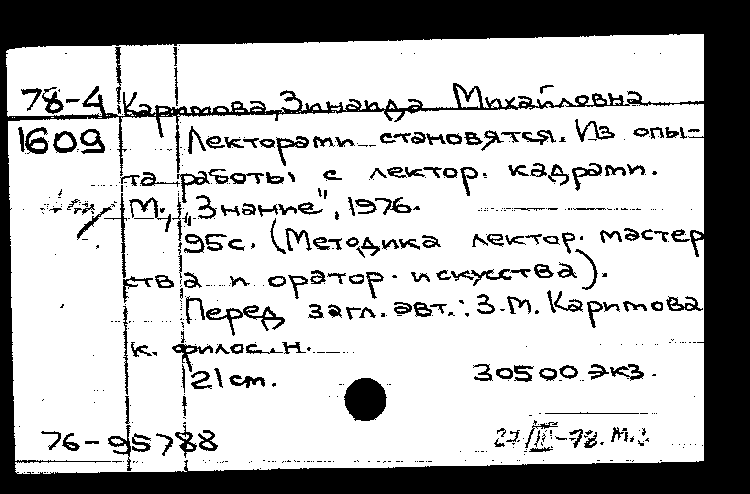 78-4 Каримова, Зинаида Михайловна
1609 Лекторами становятся. Из опы-
та работы с лектор. кадрами.
М., „Знание", 1976.
95с. (Методика лектор. мастер
ства и оратор. искусства).
Перед загл. авт.: З.М. Каримова
к. филос. н.
21 см. 30500 экз.
76-95788 27/III-78. М.З.